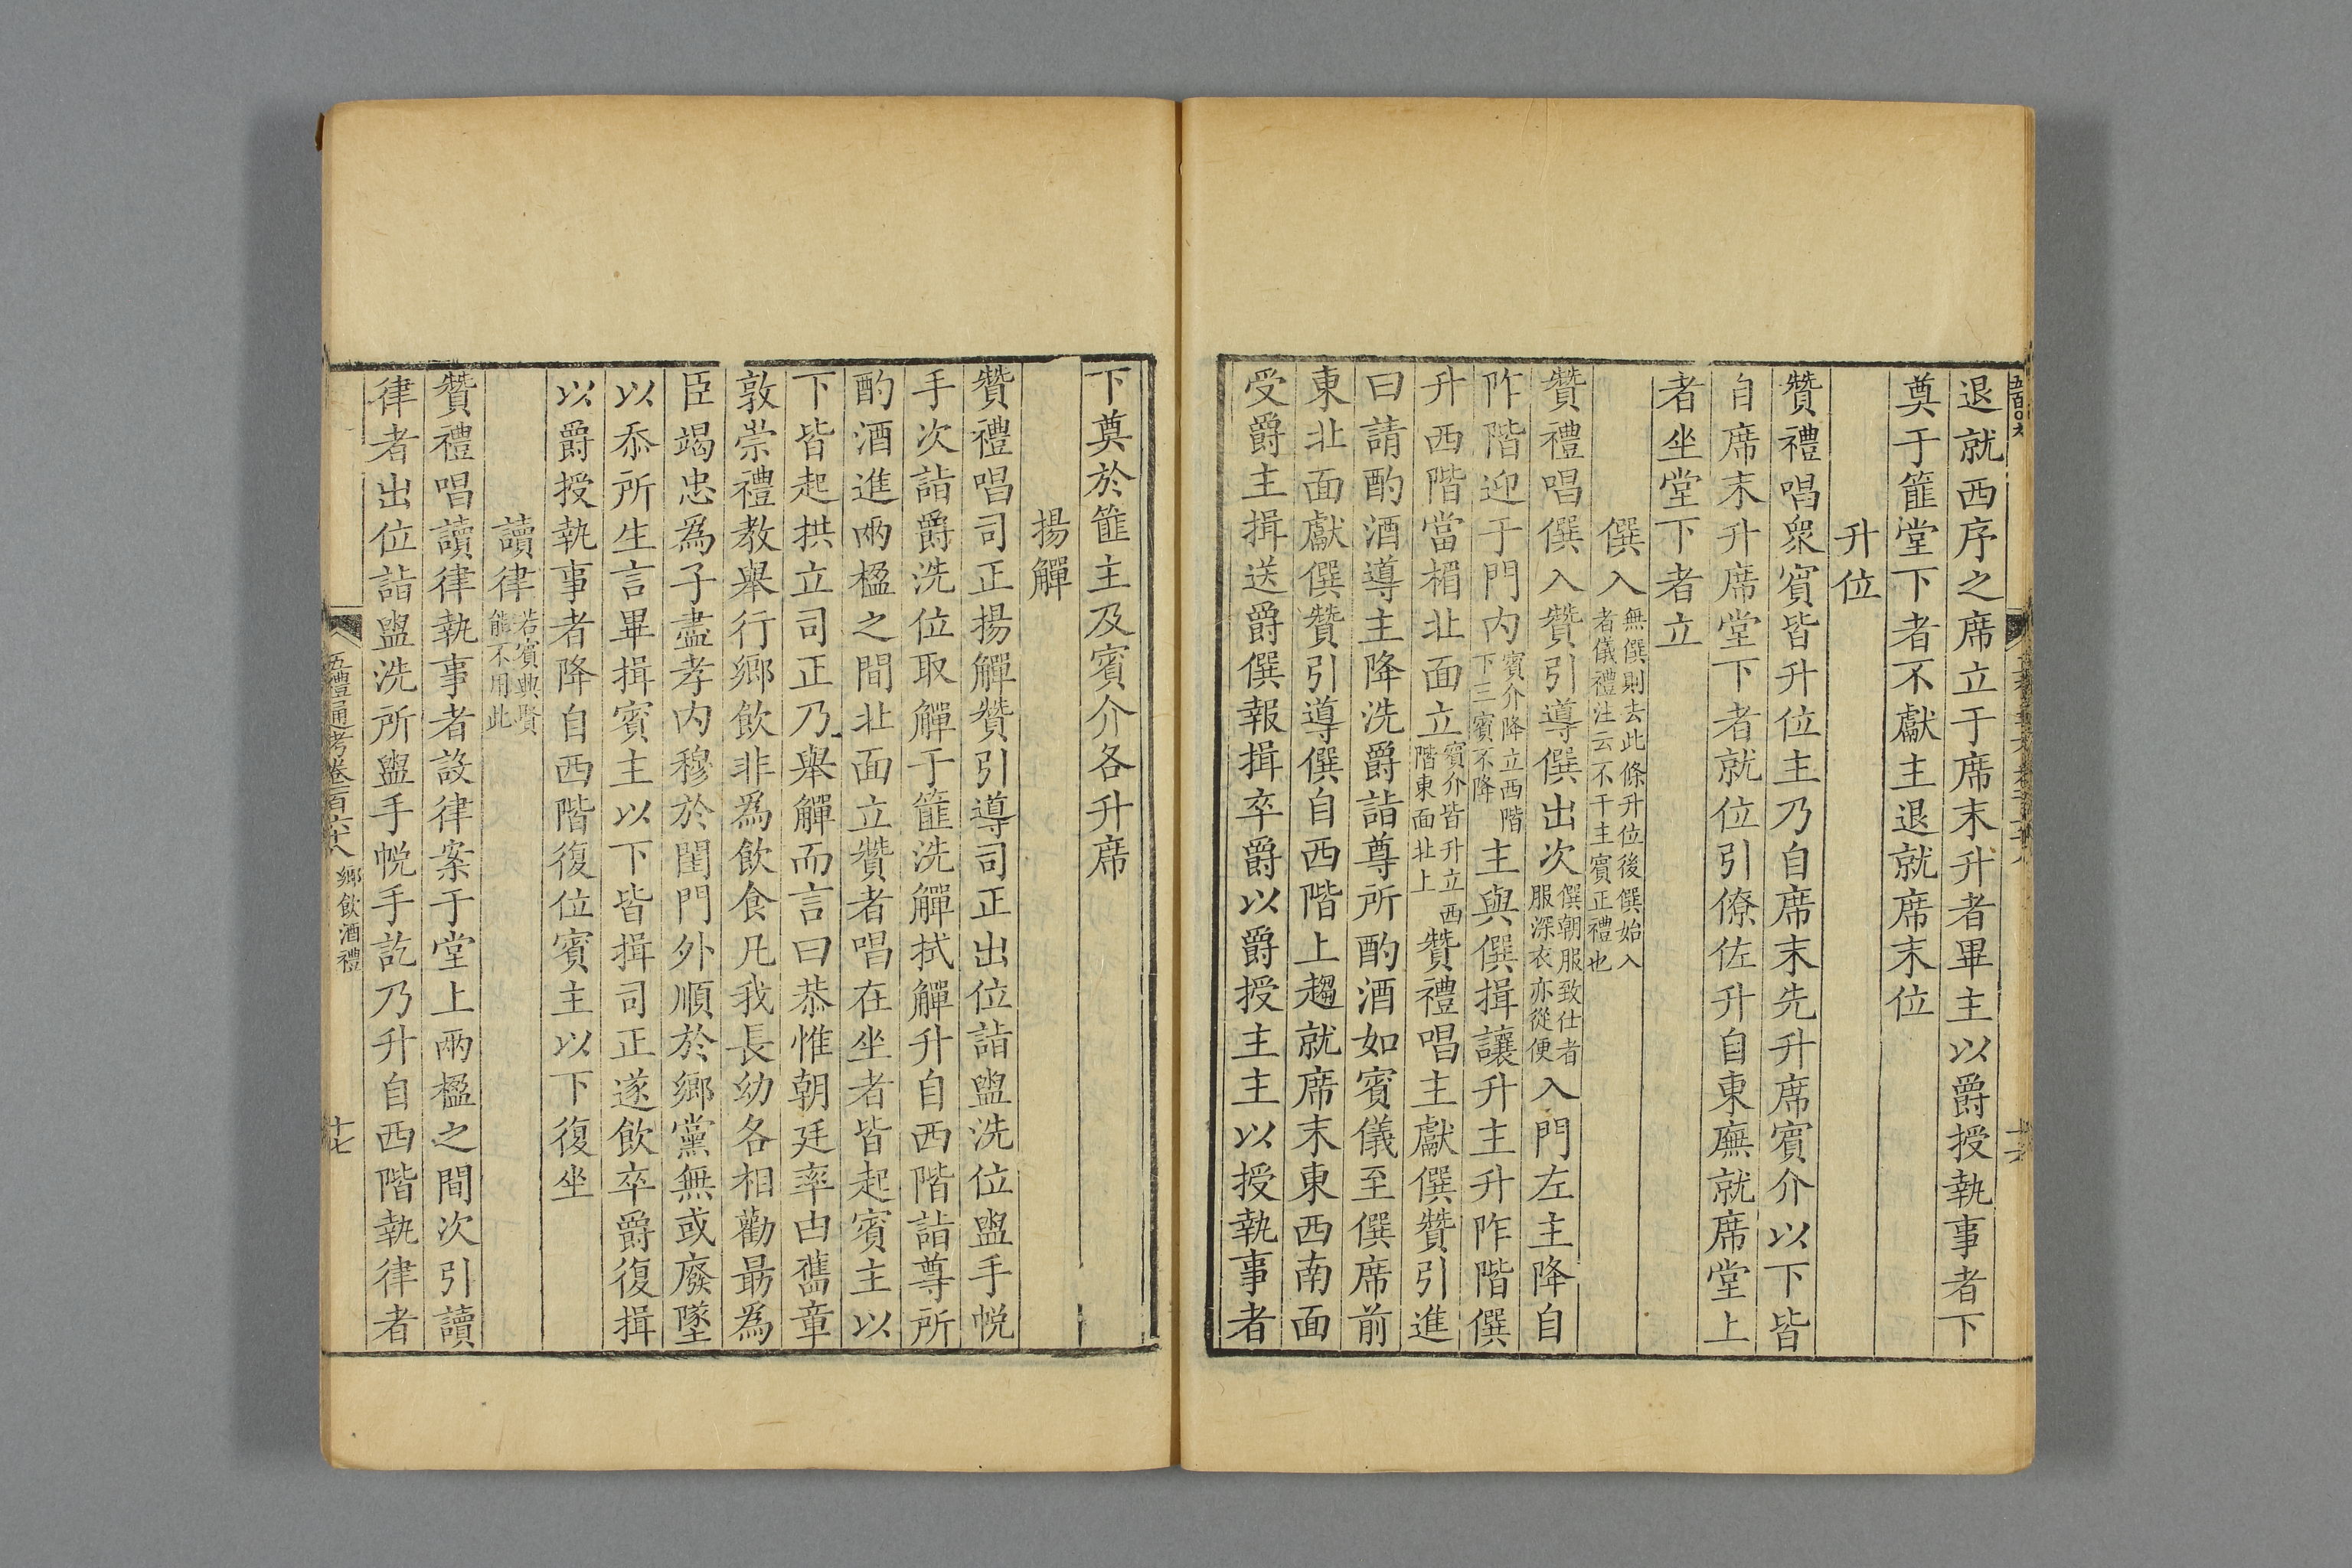 退就西序之席立于席末升者畢主以爵授執事者下
奠于篚堂下者不獻主退就席末位
升位
贊禮唱衆賓皆升位主乃自席末先升席賓介以下皆
自席末升席堂下者就位引僚佐升自東廡就席堂上
者坐堂下者立
僎入無僎則去此條升位後僎始入者儀禮注云不干主賓正禮也
贊禮唱僎入贊引導僎出次僎朝服致仕者服深衣亦從便入門左主降自
阼階迎于門内賓介降立西階下三賓不降主與僎揖讓升主升阼階僎
升西階當楣北面立賓介皆升立西階東面北上贊禮唱主獻僎贊引進
曰請酌酒導主降洗爵詣尊所酌酒如賓儀至僎席前
東北面獻僎贊引導僎自西階上趨就席末東西南面
受爵主揖送爵僎報揖卒爵以爵授主主以授執事者
下奠於篚主及賓介各升席
揚觶
贊禮唱司正揚觶贊引導司正出位詣盥洗位盥手帨
手次詣爵洗位取觶于篚洗觶拭觶升自西階詣尊所
酌酒進兩楹之間北面立贊者唱在坐者皆起賓主以
下皆起拱立司正乃舉觶而言曰恭惟朝廷率由舊章
敦崇禮教舉行鄉飲非爲飲食凡我長幼各相勸勗爲
臣竭忠爲子盡孝内穆於閨門外順於鄉黨無或廢墜
以忝所生言畢揖賓主以下皆揖司正遂飲卒爵復揖
以爵授執事者降自西階復位賓主以下復坐
讀律若賓興賢能不用此
贊禮唱讀律執事者設律案于堂上兩楹之間次引讀
律者出位詣盥洗所盥手帨手訖乃升自西階執律者
五禮通考卷一百六十八 鄉飲酒禮
十七